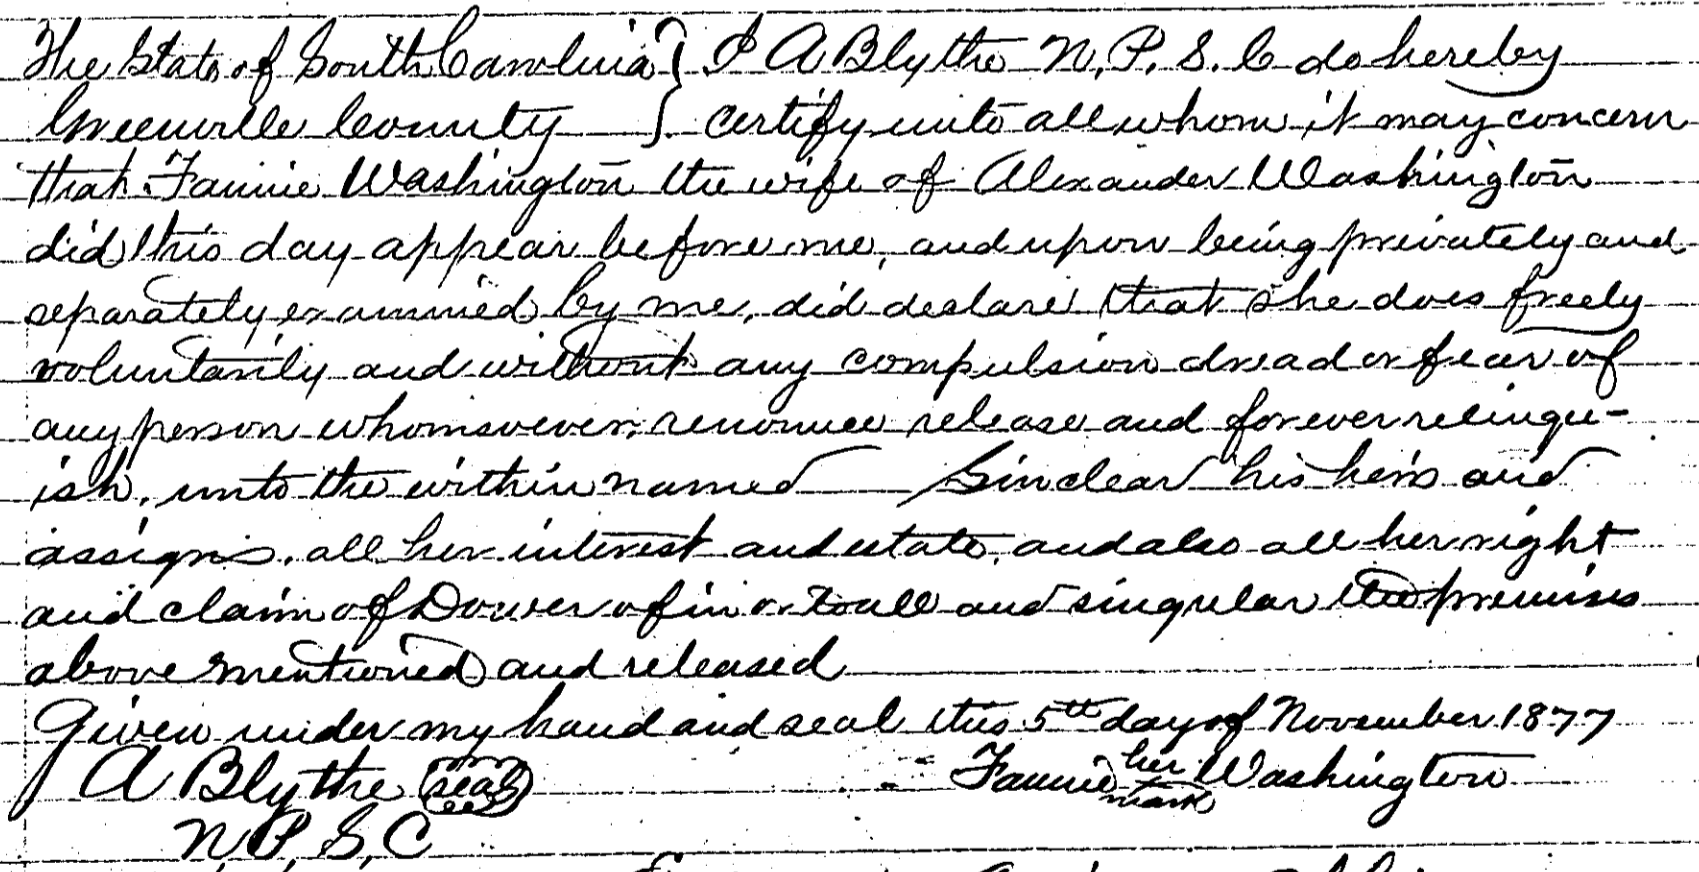 The State of South Carolina } I A Blythe N. P. S. C do hereby
Greenville County } certify unto all whom it may concern
that Fannie Washington the wife of Alexander Washington
did this day appear before me, and upon being privately and
separately examined by me, did declare that she does freely
voluntarily and without any compulsion dread or fear of
any person whomsoever, renounce release and forever relinqu-
ish, unto the within named Sinclear his heirs and
assigns, all her interest and estate, and also all her right
and claim of Dower of in or to all and singular the premises
above mentioned and released
Given under my hand and seal this 5th day of November 1877
A Blythe (seal) Fannie her mark Washington
N. P. S. C